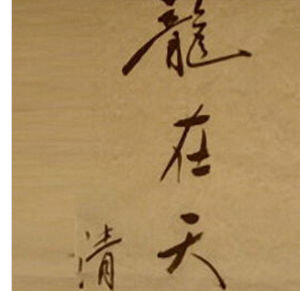 龍在天
清